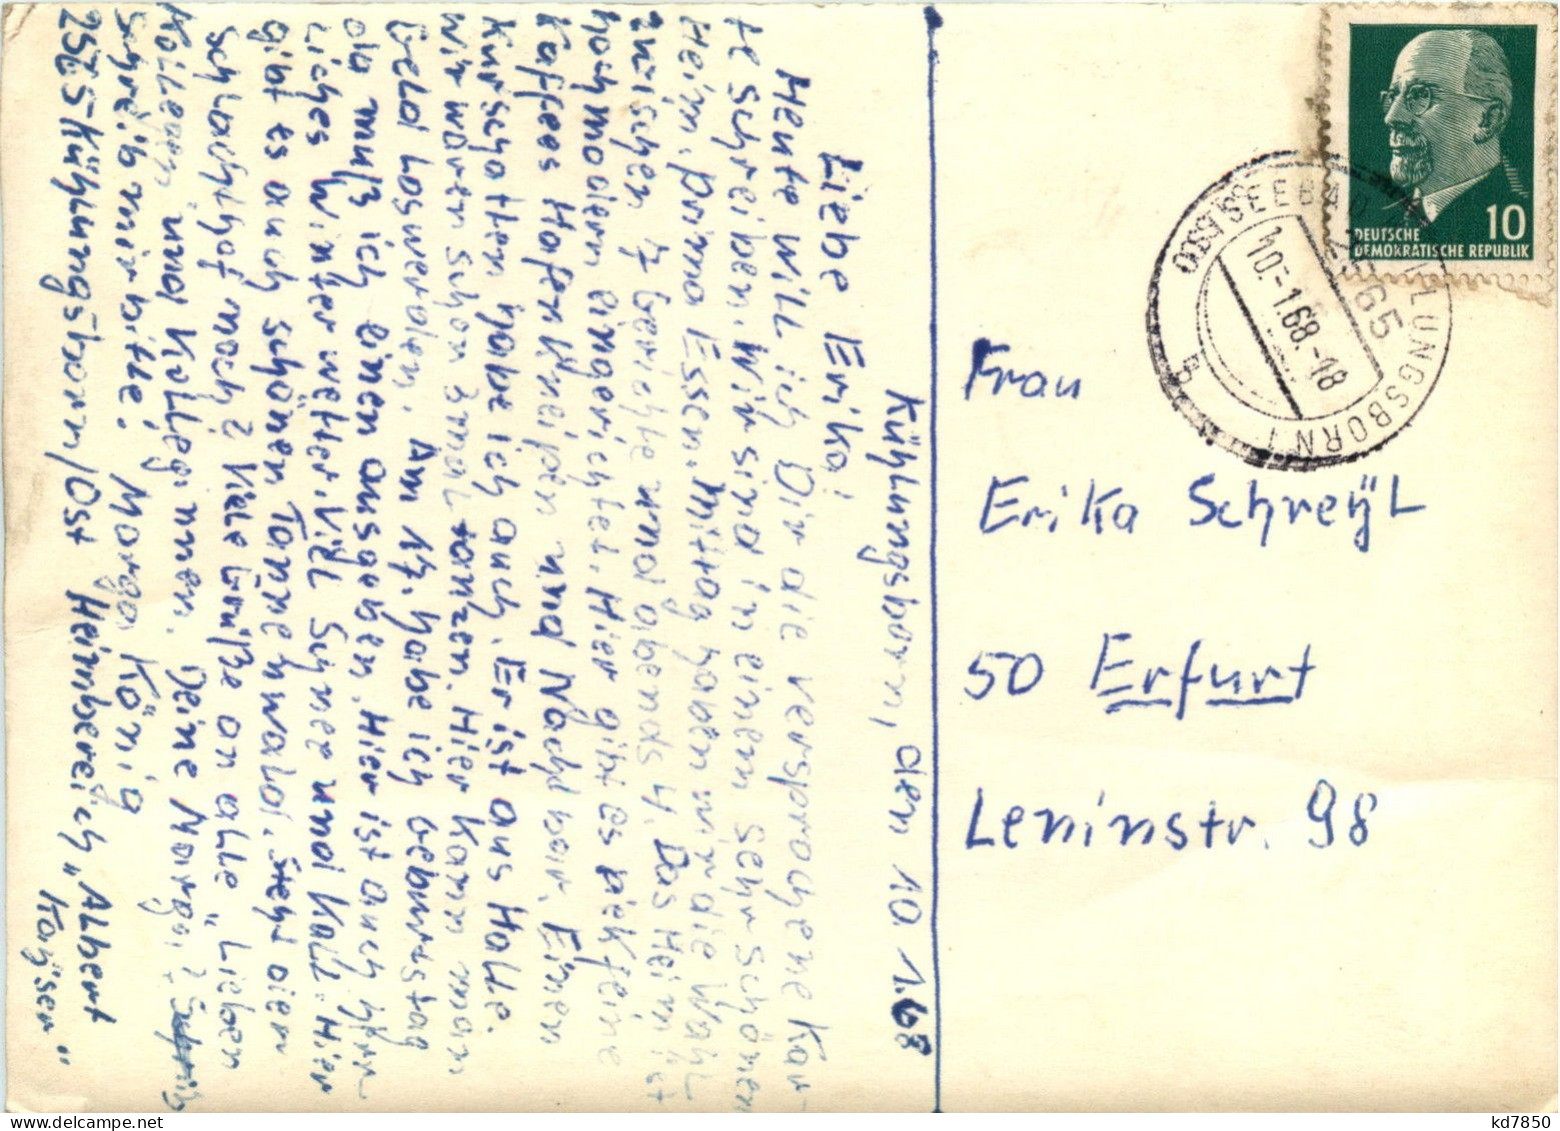 Kühlungsborn, den 10.1.68
Liebe Erika!
Heute will ich Dir die versprochene Kar-
te schreiben. Wir sind in einem sehr schönen
Heim. Prima Essen. Mittag haben wir die Wahl
zwischen 7 Gerichte und abends 4. Das Heim ist
hochmodern eingerichtet. Hier gibt es piekfeine
Kaffees Hafenkneipen und Nachtbar. Einen
Kurschatten habe ich auch. Er ist aus Halle.
Wir waren schon 2mal tanzen. Hier kann man
Geld loswerden. Am 17. habe ich Geburtstag
da muß ich einen ausgeben. Hier ist auch
Liches Winterwetter. Viel Schnee und Kalt. Hier
gibt es auch schönen Tannenwald. Steht der
Schlachthof noch? Viele Grüße an alle "Lieben
Kollegen" und Kolleginnen. Deine Marga.
Schreib mir bitte! Marga König
2565 Kühlungsborn/Ost Heimbereich "Albert
Kayser"
Frau
Erika Schreyl
50 Erfurt
Leninstr. 98
10
DEUTSCHE
DEMOKRATISCHE REPUBLIK
OSTSEEBAD KÜHLUNGSBORN 1
2565
10.-1.68.-18